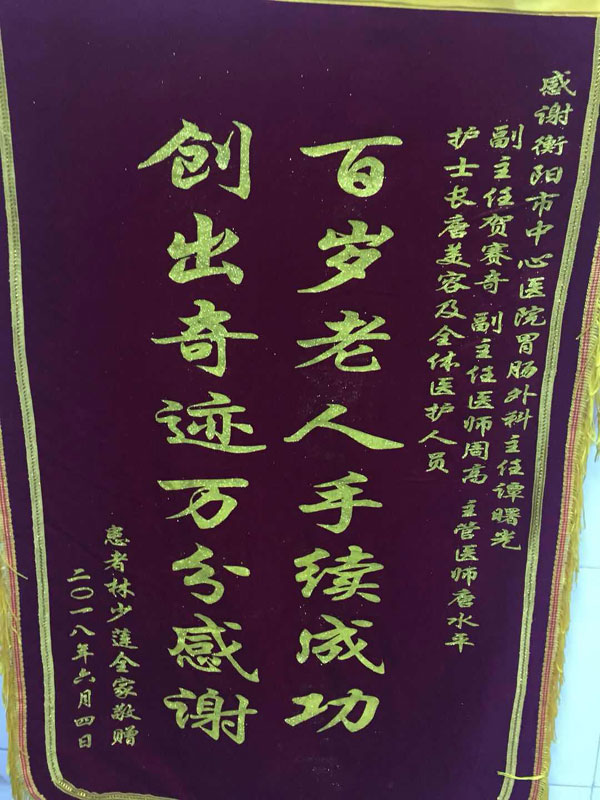 感谢衡阳市中心医院胃肠外科主任谭曙光
副主任贺赛奇 副主任医师周高 主管医师唐水平
护士长唐美容及全体医护人员
百岁老人手续成功
创出奇迹万分感谢
患者林少莲全家敬赠
二〇一八年六月四日